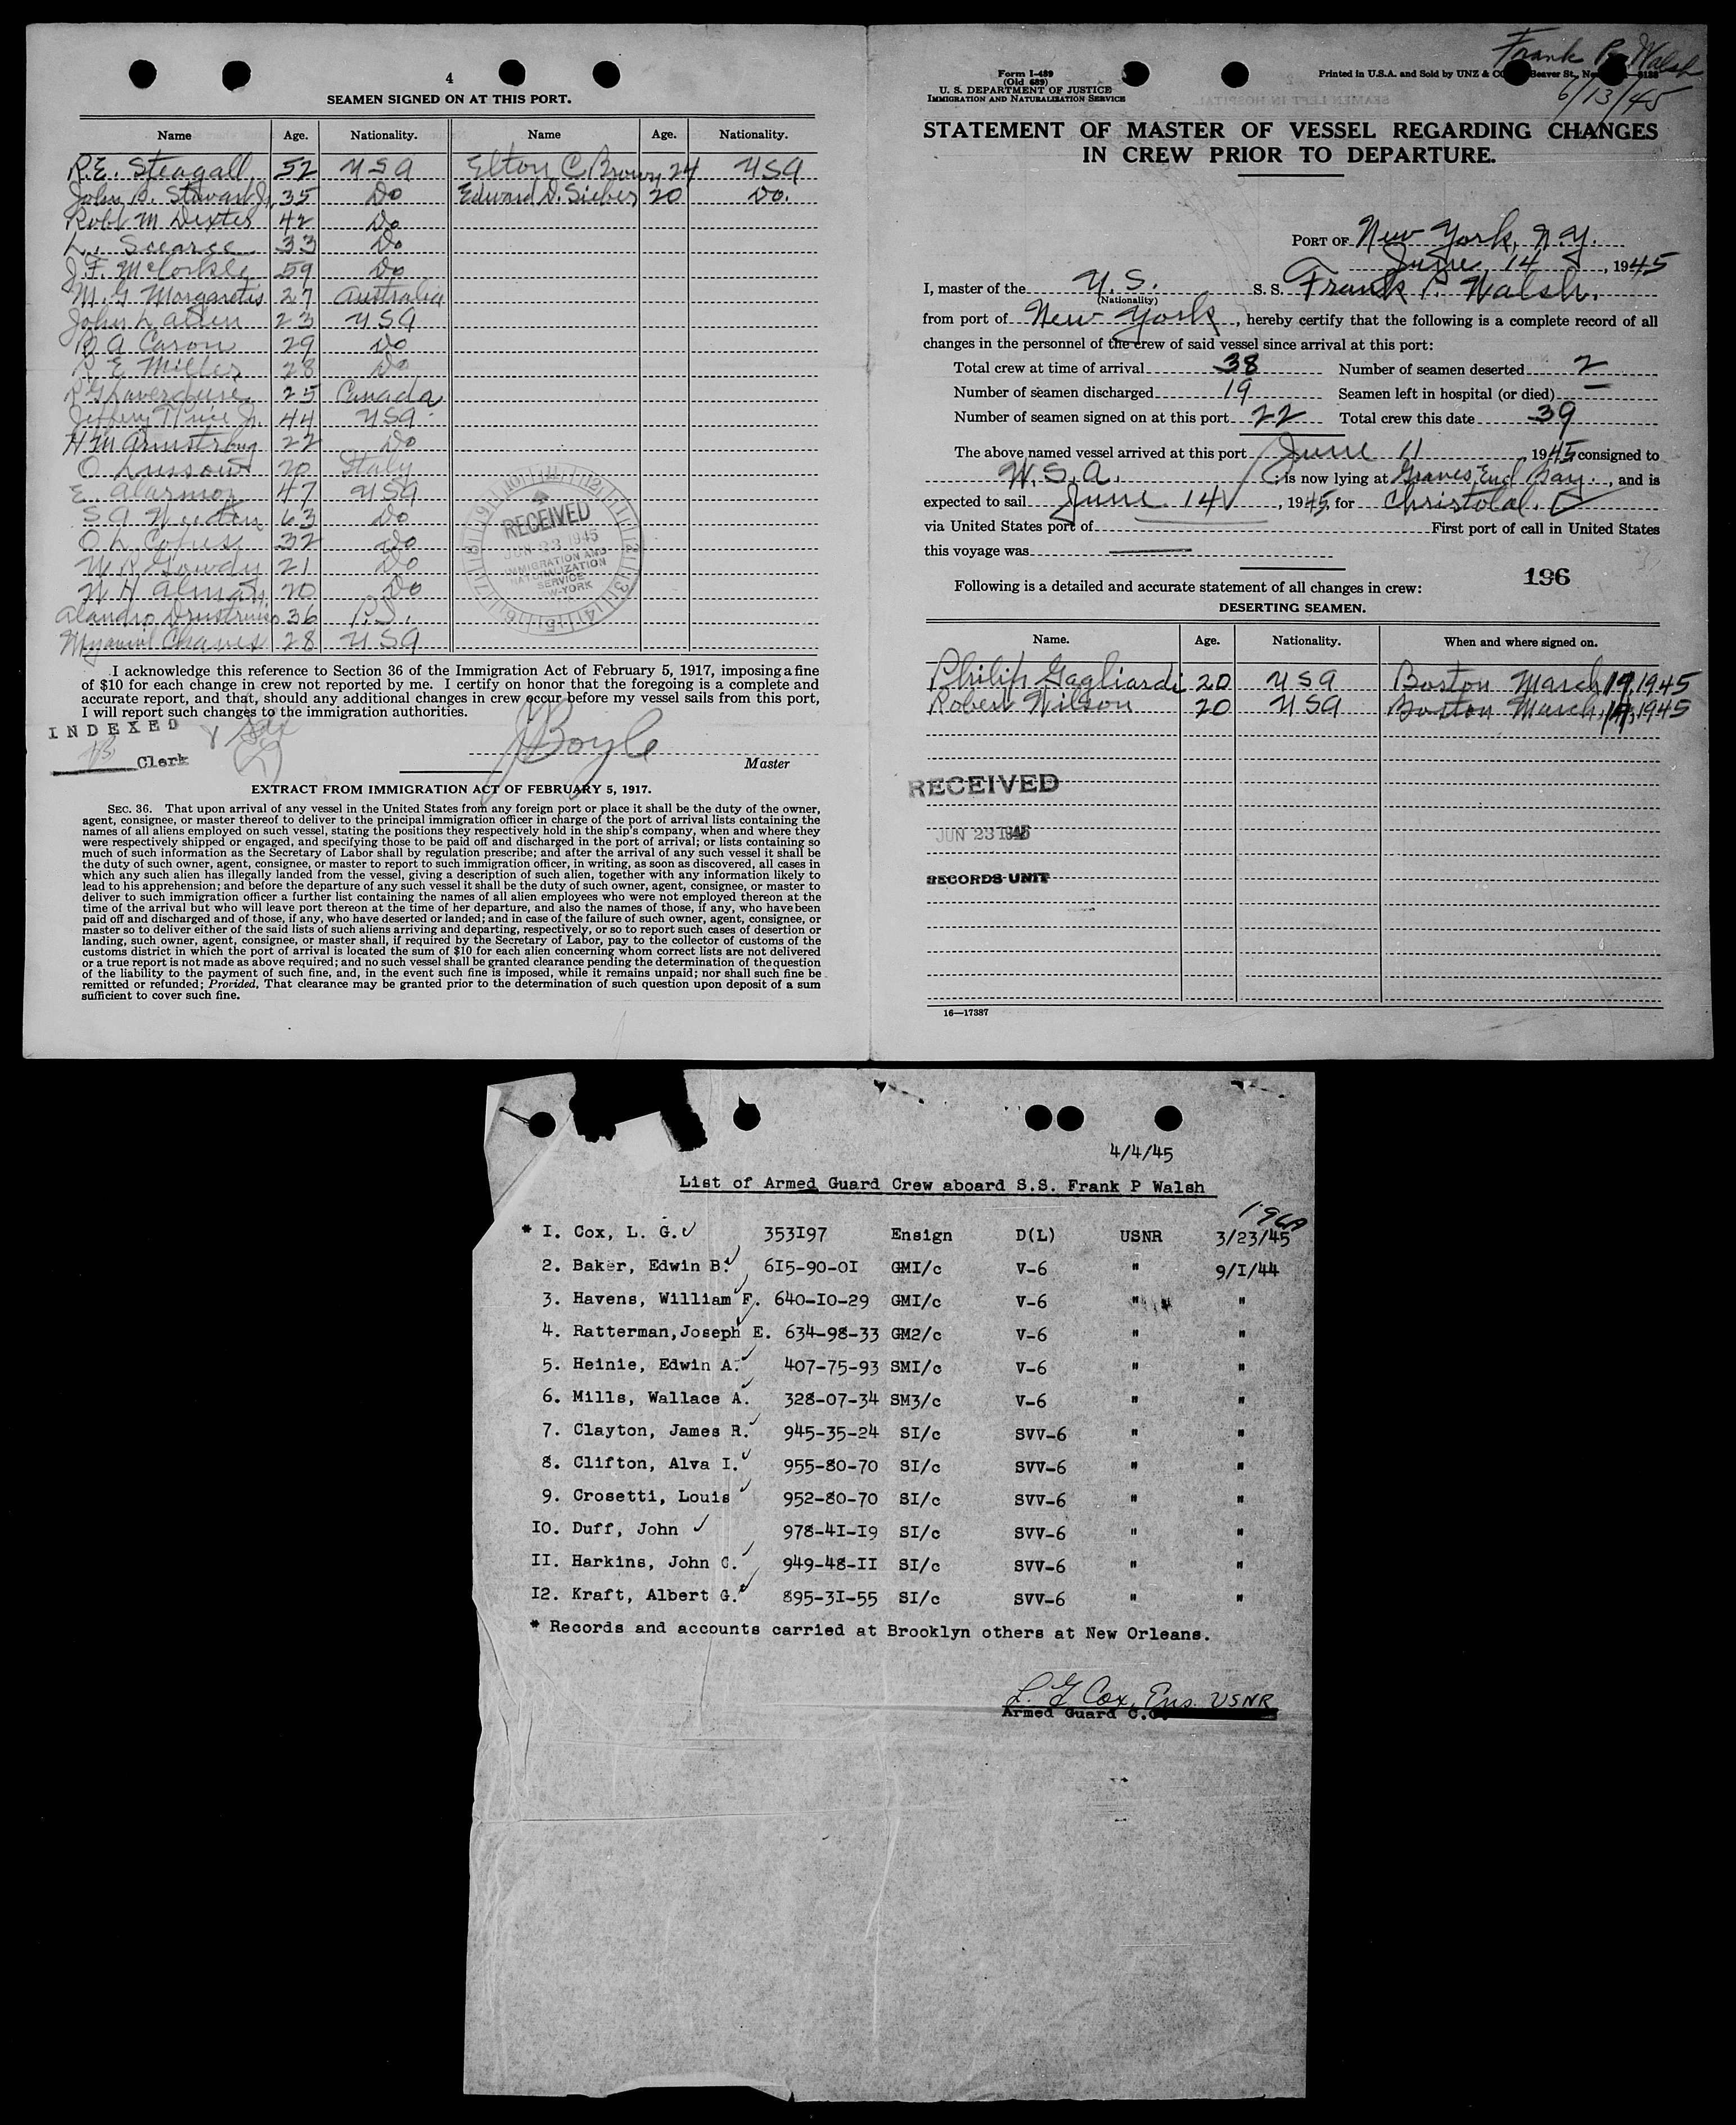 4
SEAMEN SIGNED ON AT THIS PORT.
Name Age. Nationality. Name Age. Nationality.
R.E. Steagall 52 USA Elton C Brown 24 USA
John B. Stewart Jr. 35 Do Edward D. Sieber 20 Do.
Robt M Dexter 42 Do
L. Scearce 33 Do
J.F. McCorkle 59 Do
M.G Margaretis 27 Australia
John L Allen 23 USA
B A Caron 29 Do
R E Miller 28 Do
25 Canada
Jeffery Price Jr. 44 USA
H M Armstrong 22 Do
O 20 Italy
E. Alarmon 47 USA
S A 63 Do
O L 32 Do
W R Gowdy 21 Do
W H 20 Do
36 P.I.
Chaves 28 USA
RECEIVED
JUN 23 1945
IMMIGRATION AND
NATURALIZATION
SERVICE
W-YORK
I acknowledge this reference to Section 36 of the Immigration Act of February 5, 1917, imposing a fine
of $10 for each change in crew not reported by me. I certify on honor that the foregoing is a complete and
accurate report, and that, should any additional changes in crew occur before my vessel sails from this port,
I will report such changes to the immigration authorities.
INDEXED
Clerk
J Boyle
Master
EXTRACT FROM IMMIGRATION ACT OF FEBRUARY 5, 1917.
SEC. 36. That upon arrival of any vessel in the United States from any foreign port or place it shall be the duty of the owner,
agent, consignee, or master thereof to deliver to the principal immigration officer in charge of the port of arrival lists containing the
names of all aliens employed on such vessel, stating the positions they respectively hold in the ship's company, when and where they
were respectively shipped or engaged, and specifying those to be paid off and discharged in the port of arrival; or lists containing so
much of such information as the Secretary of Labor shall by regulation prescribe; and after the arrival of any such vessel it shall be
the duty of such owner, agent, consignee, or master to report to such immigration officer, in writing, as soon as discovered, all cases in
which any such alien has illegally landed from the vessel, giving a description of such alien, together with any information likely to
lead to his apprehension; and before the departure of any such vessel it shall be the duty of such owner, agent, consignee, or master to
deliver to such immigration officer a further list containing the names of all alien employees who were not employed thereon at the
time of the arrival but who will leave port thereon at the time of her departure, and also the names of those, if any, who have been
paid off and discharged and of those, if any, who have deserted or landed; and in case of the failure of such owner, agent, consignee, or
master so to deliver either of the said lists of such aliens arriving and departing, respectively, or so to report such cases of desertion or
landing, such owner, agent, consignee, or master shall, if required by the Secretary of Labor, pay to the collector of customs of the
customs district in which the port of arrival is located the sum of $10 for each alien concerning whom correct lists are not delivered
or a true report is not made as above required; and no such vessel shall be granted clearance pending the determination of the question
of the liability to the payment of such fine, and, in the event such fine is imposed, while it remains unpaid; nor shall such fine be
remitted or refunded; Provided, That clearance may be granted prior to the determination of such question upon deposit of a sum
sufficient to cover such fine.
Frank P. Walsh
6/13/45
Form I-489
(Old 689)
U. S. DEPARTMENT OF JUSTICE
IMMIGRATION AND NATURALIZATION SERVICE
Printed in U.S.A. and Sold by UNZ & CO Beaver St., Ne
STATEMENT OF MASTER OF VESSEL REGARDING CHANGES
IN CREW PRIOR TO DEPARTURE.
PORT OF New York, N.Y.
June 14, 1945
I, master of the U.S. S. S. Frank P. Walsh.
(Nationality)
from port of New York, hereby certify that the following is a complete record of all
changes in the personnel of the crew of said vessel since arrival at this port:
Total crew at time of arrival 38 Number of seamen deserted 2
Number of seamen discharged 19 Seamen left in hospital (or died) —
Number of seamen signed on at this port 22 Total crew this date 39
The above named vessel arrived at this port June 11 1945 consigned to
W.S.A. is now lying at Graves End Bay., and is
expected to sail June 14, 1945, for Christobal.
via United States port of First port of call in United States
this voyage was
196
Following is a detailed and accurate statement of all changes in crew:
DESERTING SEAMEN.
Name. Age. Nationality. When and where signed on.
Philip Gagliardi 20 USA Boston March 19, 1945
Robert Wilson 20 USA Boston March, 19, 1945
RECEIVED
JUN 23 1945
RECORDS UNIT
16—17387
4/4/45
List of Armed Guard Crew aboard S.S. Frank P Walsh
196A
* I. Cox, L. G. 353I97 Ensign D(L) USNR 3/23/45
2. Baker, Edwin B. 6I5-90-0I GMI/c V-6 " 9/I/44
3. Havens, William F. 640-I0-29 GMI/c V-6 " "
4. Ratterman,Joseph E. 634-98-33 GM2/c V-6 " "
5. Heinie, Edwin A. 407-75-93 SMI/c V-6 " "
6. Mills, Wallace A. 328-07-34 SM3/c V-6 " "
7. Clayton, James R. 945-35-24 SI/c SVV-6 " "
8. Clifton, Alva I. 955-80-70 SI/c SVV-6 " "
9. Crosetti, Louis 952-80-70 SI/c SVV-6 " "
I0. Duff, John 978-4I-I9 SI/c SVV-6 " "
II. Harkins, John C. 949-48-II SI/c SVV-6 " "
I2. Kraft, Albert G. 895-3I-55 SI/c SVV-6 " "
* Records and accounts carried at Brooklyn others at New Orleans.
L. G Cox, Ens. USNR
Armed Guard C.O.